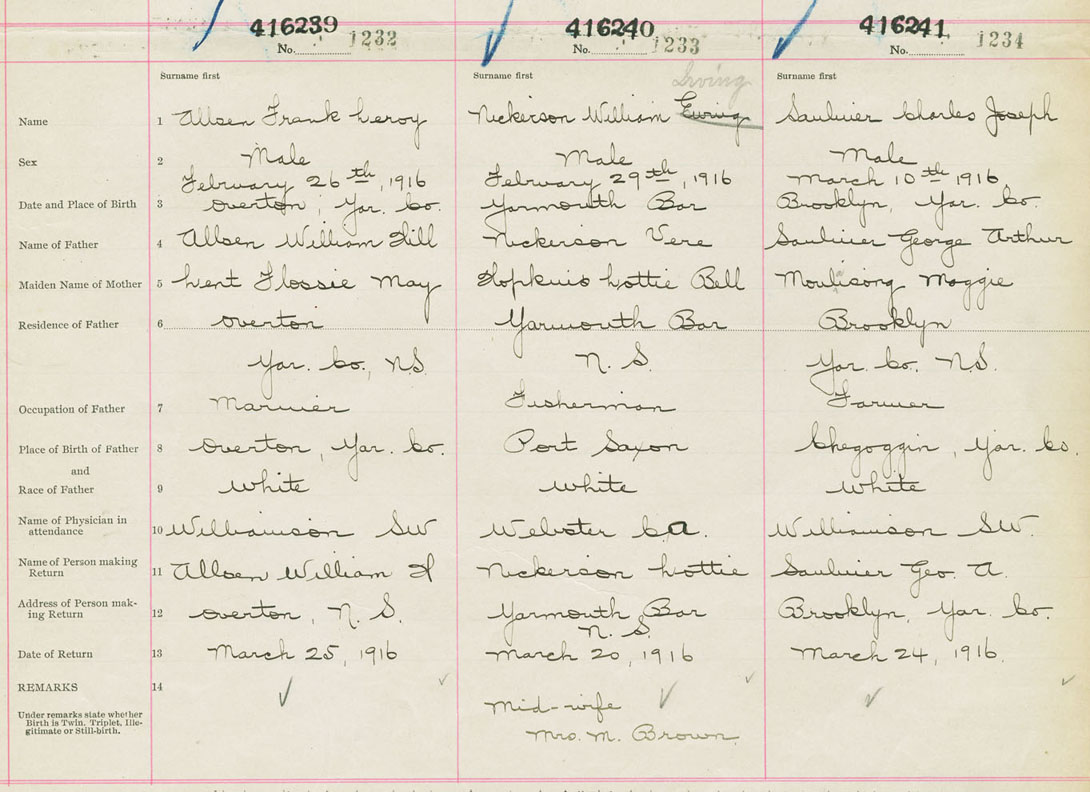 416239 416240 416241
No. 1232 No. 1233 No. 1234
Surname first Surname first Surname first
Irving
Name 1 Allen Frank Leroy Nickerson William Ewing Saulnier Charles Joseph
Sex 2 Male Male Male
February 26th, 1916 February 29th, 1916 March 10th 1916
Date and Place of Birth 3 Overton, Yar. Co. Yarmouth Bar Brooklyn, Yar. Co.
Name of Father 4 Allen William Hill Nickerson Vere Saulnier George Arthur
Maiden Name of Mother 5 Lent Flossie May Hopkins Lottie Bell Moulisong Maggie
Residence of Father 6 Overton Yarmouth Bar Brooklyn
Yar. Co., N.S. N. S. Yar. Co. N.S.
Occupation of Father 7 Mariner Fisherman Farmer
Place of Birth of Father 8 Overton, Yar. Co. Port Saxon Chegoggin, Yar. Co.
and
Race of Father 9 White White White
Name of Physician in
attendance 10 Williamson SW Webster C A. Williamson SW.
Name of Person making
Return 11 Allen William H Nickerson Lottie Saulnier Geo. A.
Address of Person mak-
ing Return 12 Overton, N. S. Yarmouth Bar Brooklyn, Yar. Co.
N. S.
Date of Return 13 March 25, 1916 March 20, 1916 March 24, 1916.
REMARKS 14
Under remarks state whether
Birth is Twin. Triplet, Ille-
gitimate or Still-birth.
Mid-wife
Mrs. M. Brown.